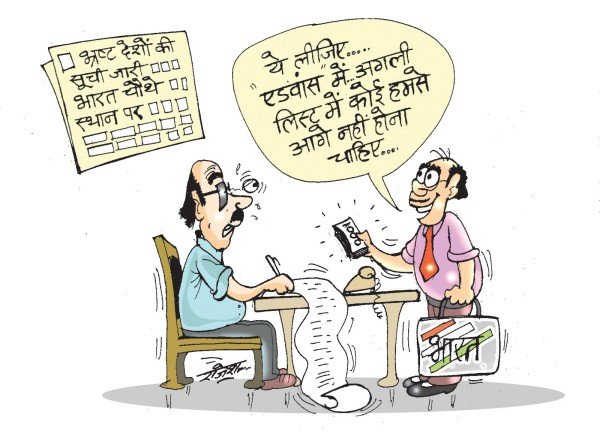 भ्रष्ट देशों की
सूची जारी
भारत चौथे
स्थान पर
ये लीजिए.....
"एडवांस" में.. अगली
लिस्ट में कोई हमसे
आगे नहीं होना
चाहिए...
भारत